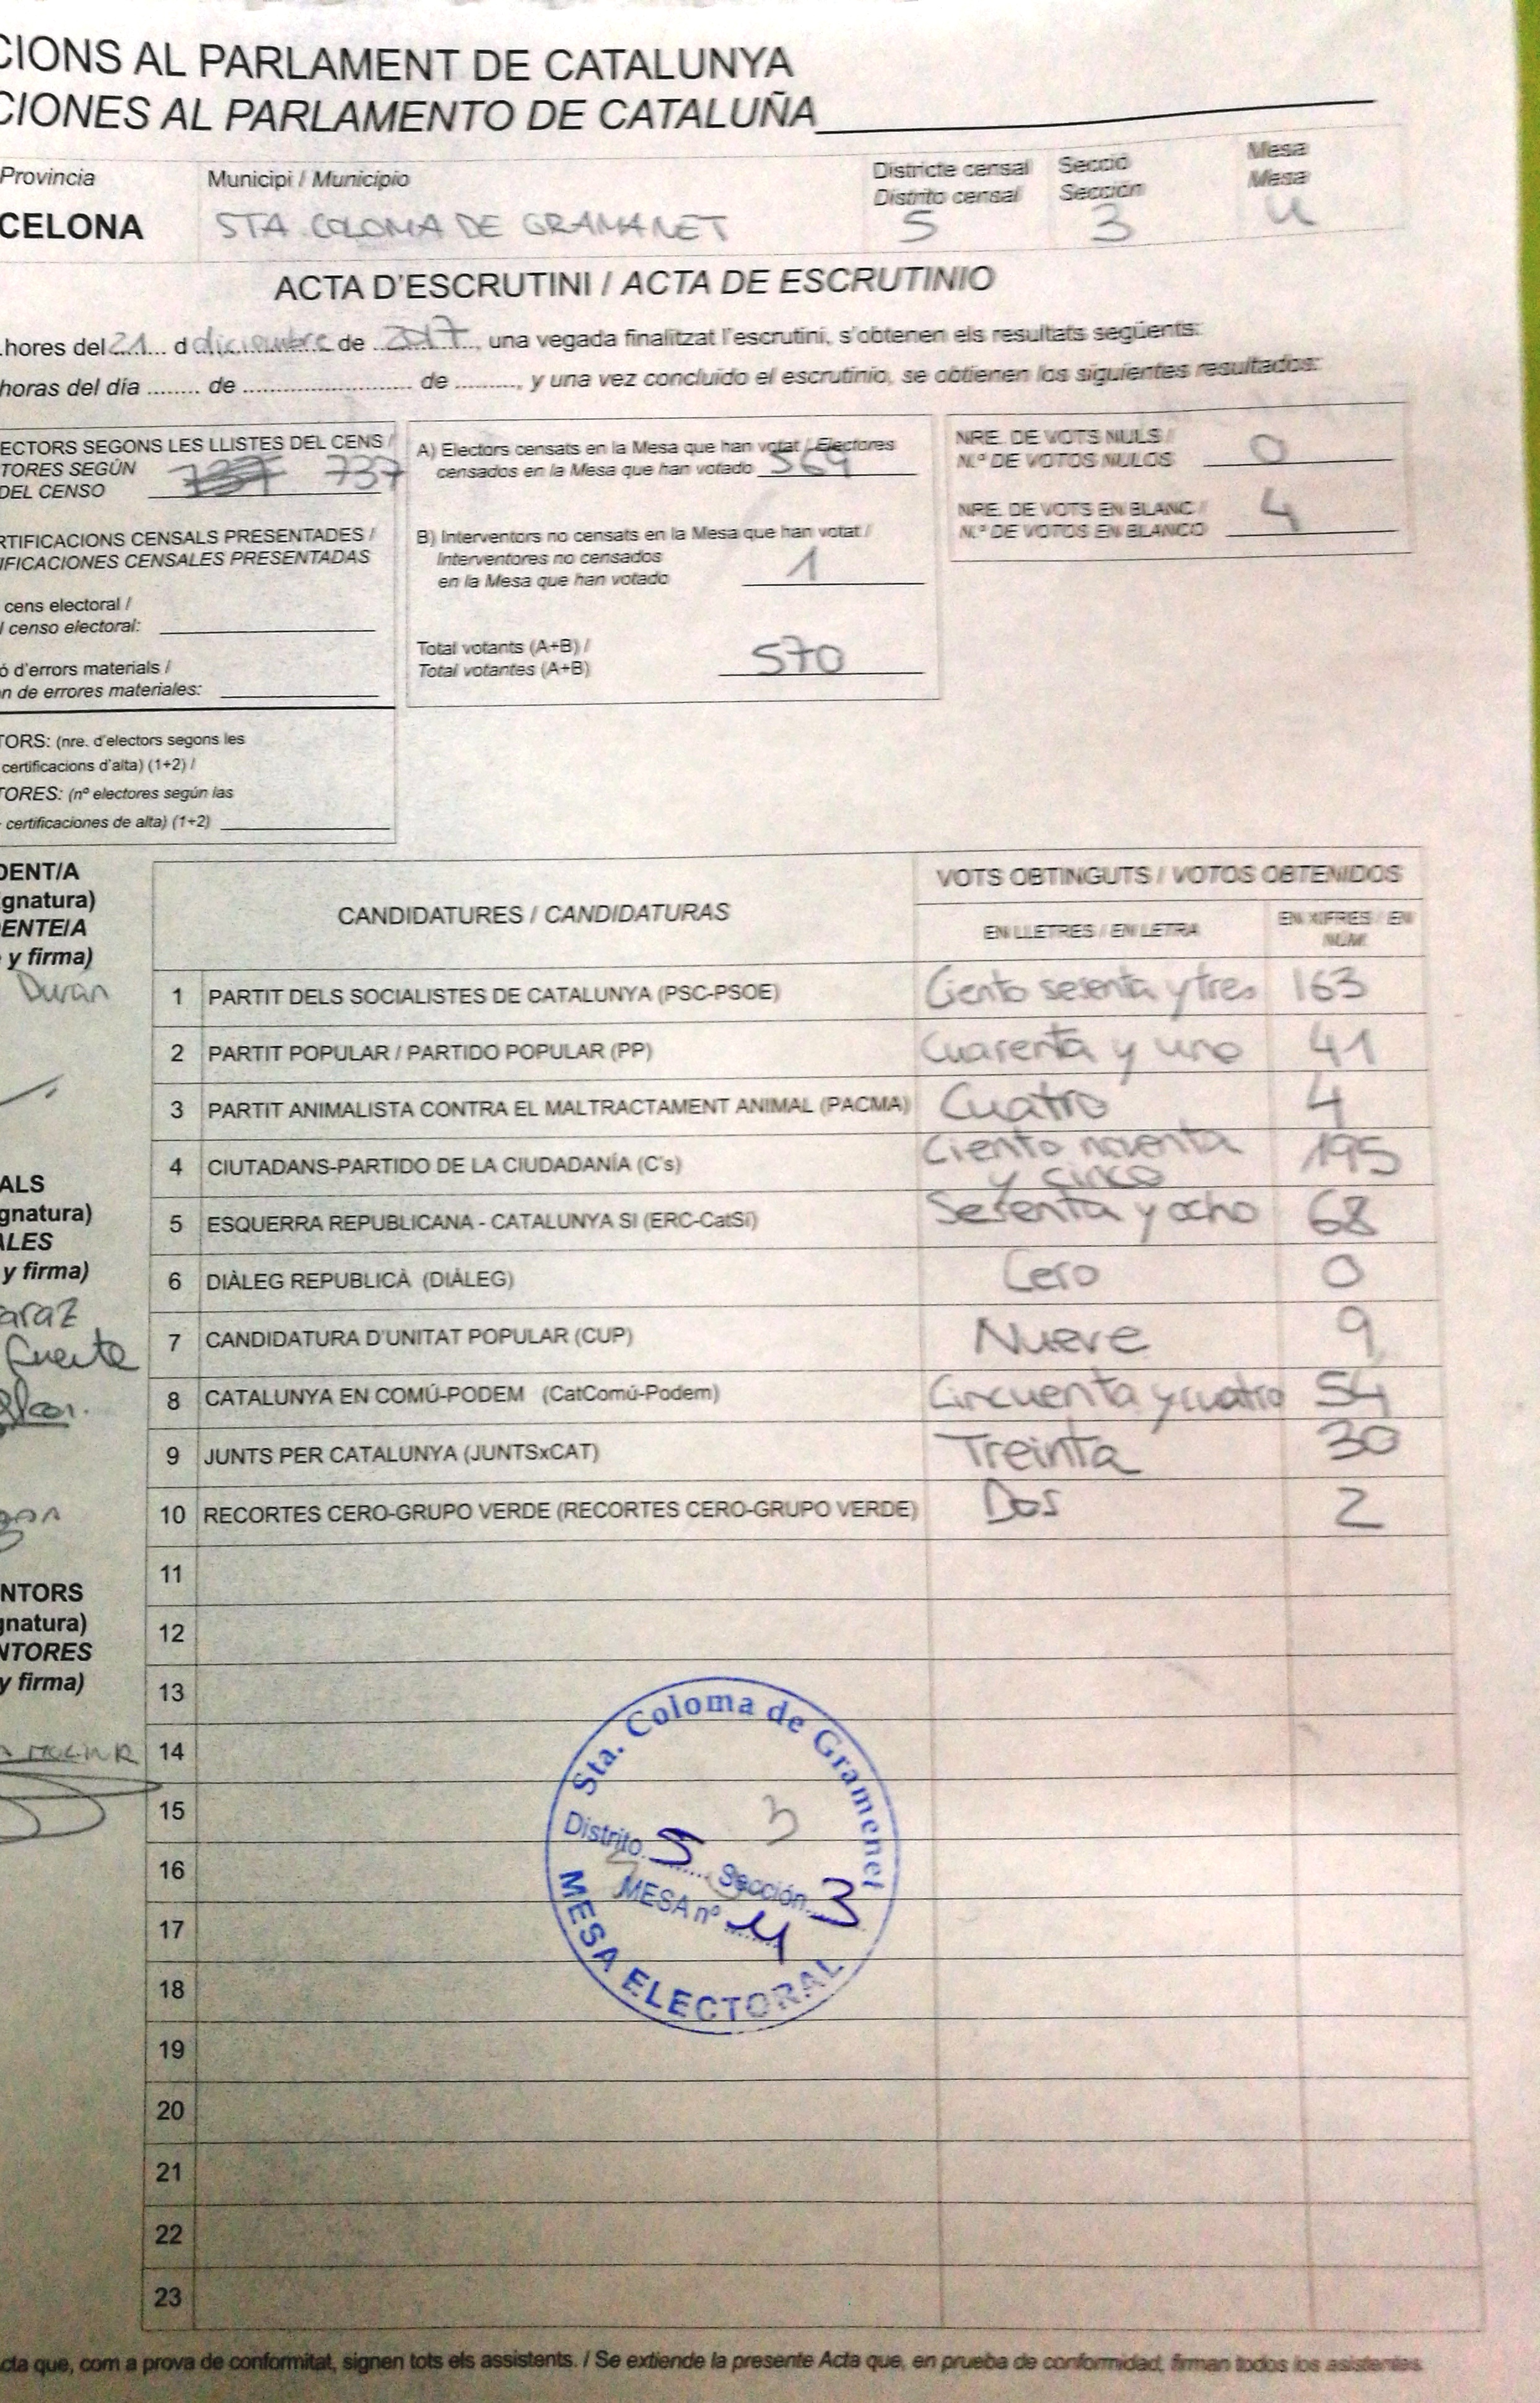 CIONS AL PARLAMENT DE CATALUNYA
CIONES AL PARLAMENTO DE CATALUÑA
Provincia
Municipi / Municipio
Districte censal
Distrito censal
Secció
Sección
Mesa
Mesa
CELONA
STA COLOMA DE GRAMANET
5
3
U
ACTA D'ESCRUTINI / ACTA DE ESCRUTINIO
hores del 21 d diciembre de 2017, una vegada finalitzat l'escrutini, s'obtenen els resultats següents:
horas del día ........ de ........................... de .........., y una vez concluido el escrutinio, se obtienen los siguientes resultados:
ECTORS SEGONS LES LLISTES DEL CENS /
TORES SEGÚN
DEL CENSO
737
RTIFICACIONS CENSALS PRESENTADES /
IFICACIONES CENSALES PRESENTADAS
cens electoral /
l censo electoral:
ó d'errors materials /
n de errores materiales:
TORS: (nre. d'electors segons les
certificacions d'alta) (1+2) /
TORES: (nº electores según las
certificaciones de alta) (1+2)
A) Electors censats en la Mesa que han votat / Electores
censados en la Mesa que han votado 569
B) Interventors no censats en la Mesa que han votat /
Interventores no censados
en la Mesa que han votado 1
Total votants (A+B) /
Total votantes (A+B) 570
NRE. DE VOTS NULS /
N.º DE VOTOS NULOS 0
NRE. DE VOTS EN BLANC /
N.º DE VOTOS EN BLANCO 4
DENT/A
gnatura)
ENTE/A
y firma)
Duran
ALS
gnatura)
ALES
y firma)
araz
Fuente
NTORS
gnatura)
NTORES
y firma)
CANDIDATURES / CANDIDATURAS
VOTS OBTINGUTS / VOTOS OBTENIDOS
EN LLETRES / EN LETRA
EN XIFRES / EN
NÚM.
1 PARTIT DELS SOCIALISTES DE CATALUNYA (PSC-PSOE) Ciento sesenta y tres 163
2 PARTIT POPULAR / PARTIDO POPULAR (PP) Cuarenta y uno 41
3 PARTIT ANIMALISTA CONTRA EL MALTRACTAMENT ANIMAL (PACMA) Cuatro 4
4 CIUTADANS-PARTIDO DE LA CIUDADANÍA (C's) Ciento noventa y cinco 195
5 ESQUERRA REPUBLICANA - CATALUNYA SI (ERC-CatSí) Sesenta y ocho 68
6 DIÀLEG REPUBLICÀ (DIÀLEG) Cero 0
7 CANDIDATURA D'UNITAT POPULAR (CUP) Nueve 9
8 CATALUNYA EN COMÚ-PODEM (CatComú-Podem) Cincuenta y cuatro 54
9 JUNTS PER CATALUNYA (JUNTSxCAT) Treinta 30
10 RECORTES CERO-GRUPO VERDE (RECORTES CERO-GRUPO VERDE) Dos 2
11
12
13
14
15
16
17
18
19
20
21
22
23
Sta. Coloma de Gramenet
3
Distrito 5 Sección 3
MESA nº U
MESA ELECTORAL
cta que, com a prova de conformitat, signen tots els assistents. / Se extiende la presente Acta que, en prueba de conformidad, firman todos los asistentes